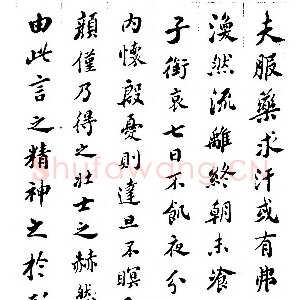 夫服藥求汗或有弗
渙然流離終朝未湌
子銜哀七日不飢夜分
內懷殷憂則達旦不瞑
顏僅乃得之壯士之赫然
由此言之精神之於
Shufawang.CN